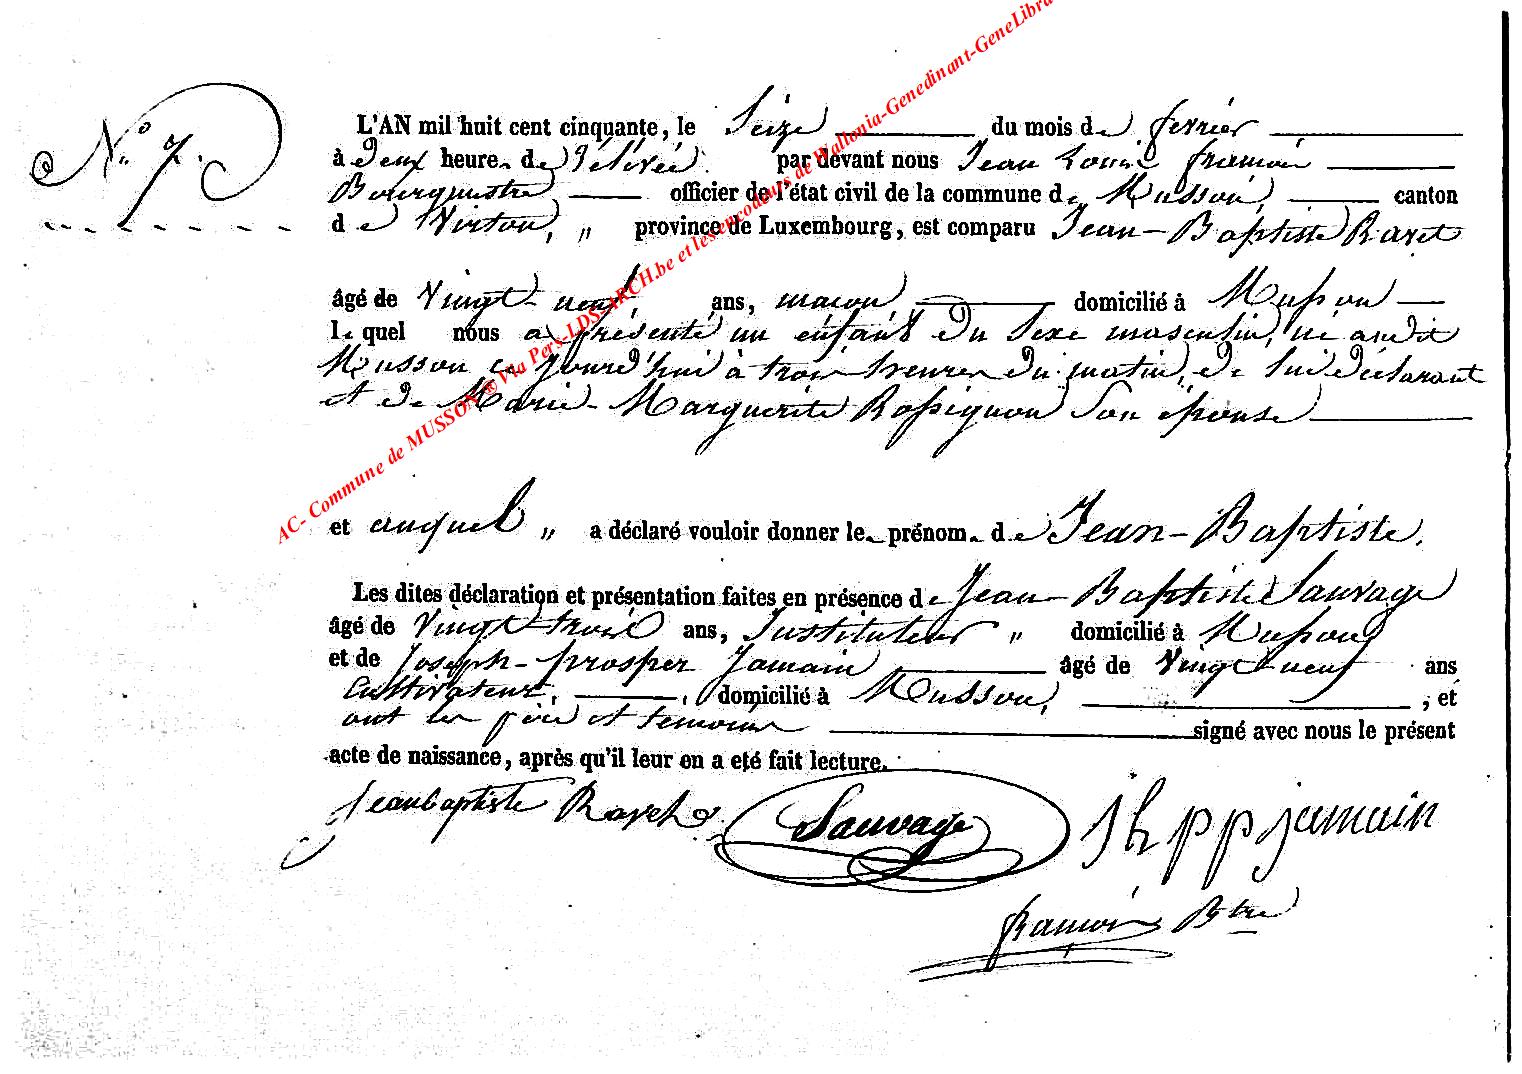 N.° 7.
L'AN mil huit cent cinquante, le Seize du mois de février
à deux heures de rélévée par devant nous Jean Louis françois
Bourguestre officier de l'état civil de la commune de Musson, canton
de Virton, „ province de Luxembourg, est comparu Jean-Baptiste Ravet
âgé de Vingt-neuf ans, macon domicilié à Musson
lequel nous a présenté un enfant du sexe masculin, né audit
Musson ce jourd'hui à trois heures du matin, de lui déclarant
et de Marie-Marguerite Rossignon son épouse
et auquel „ a déclaré vouloir donner le prénom de Jean-Baptiste.
Les dites déclaration et présentation faites en présence de Jean-Baptiste Sauvage
âgé de Vingt-trois ans, Instituteur „ domicilié à Musson
et de Joseph-prosper Jamain âgé de vingt neuf ans
Cultivateur, domicilié à Musson, ; et
ont les père et temoins signé avec nous le présent
acte de naissance, après qu'il leur en a eté fait lecture.
Jeanbaptiste Sauvage jh pp jamain
françois Btre
AC- Commune de MUSSON ® Via Pers-LDS-ARCH.be et les encodeurs de Wallonia-Genedinant-GeneLibra